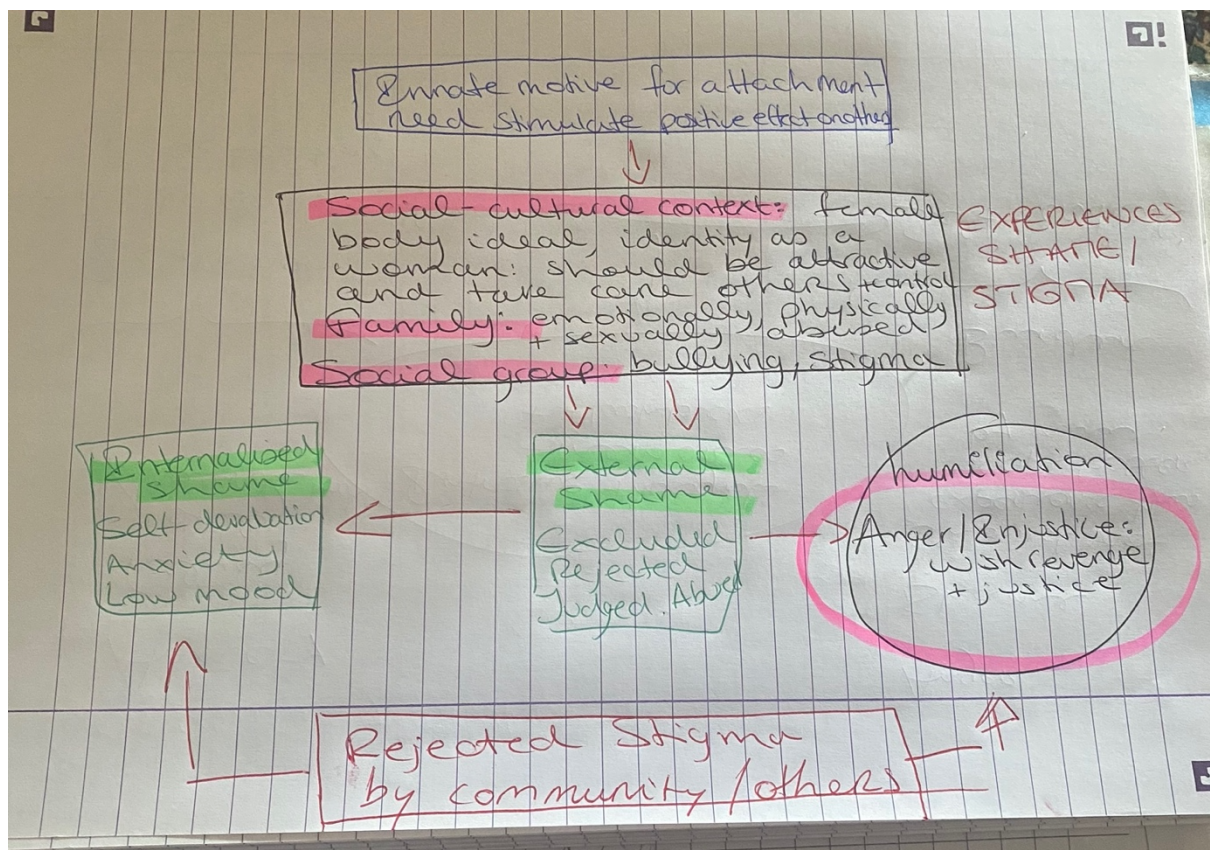 Innate motive for attachment
need stimulate positive effect on other
Social-cultural context: female
body ideal, identity as a
woman: should be attractive
and take care others + control
Family: emotionally, physically
+ sexually abused
Social group: bullying, stigma
EXPERIENCES
SHAME/
STIGMA
Internalised
shame
Self-devaluation
Anxiety
Low mood
External
Shame
Excluded
Rejected
Judged. Abused
humiliation
Anger/Injustice:
wish revenge
+ justice
Rejected Stigma
by community/others